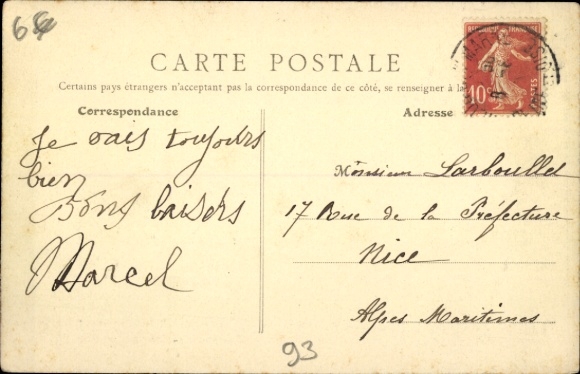 CARTE POSTALE
Certains pays étrangers n'acceptant pas la correspondance de ce côté, se renseigner à la
Correspondance
Adresse
Je vais toujours
bien
Bons baisers
Marcel
Monsieur Larboullet
17 Rue de la Préfecture
Nice
Alpes Maritimes
10c
93